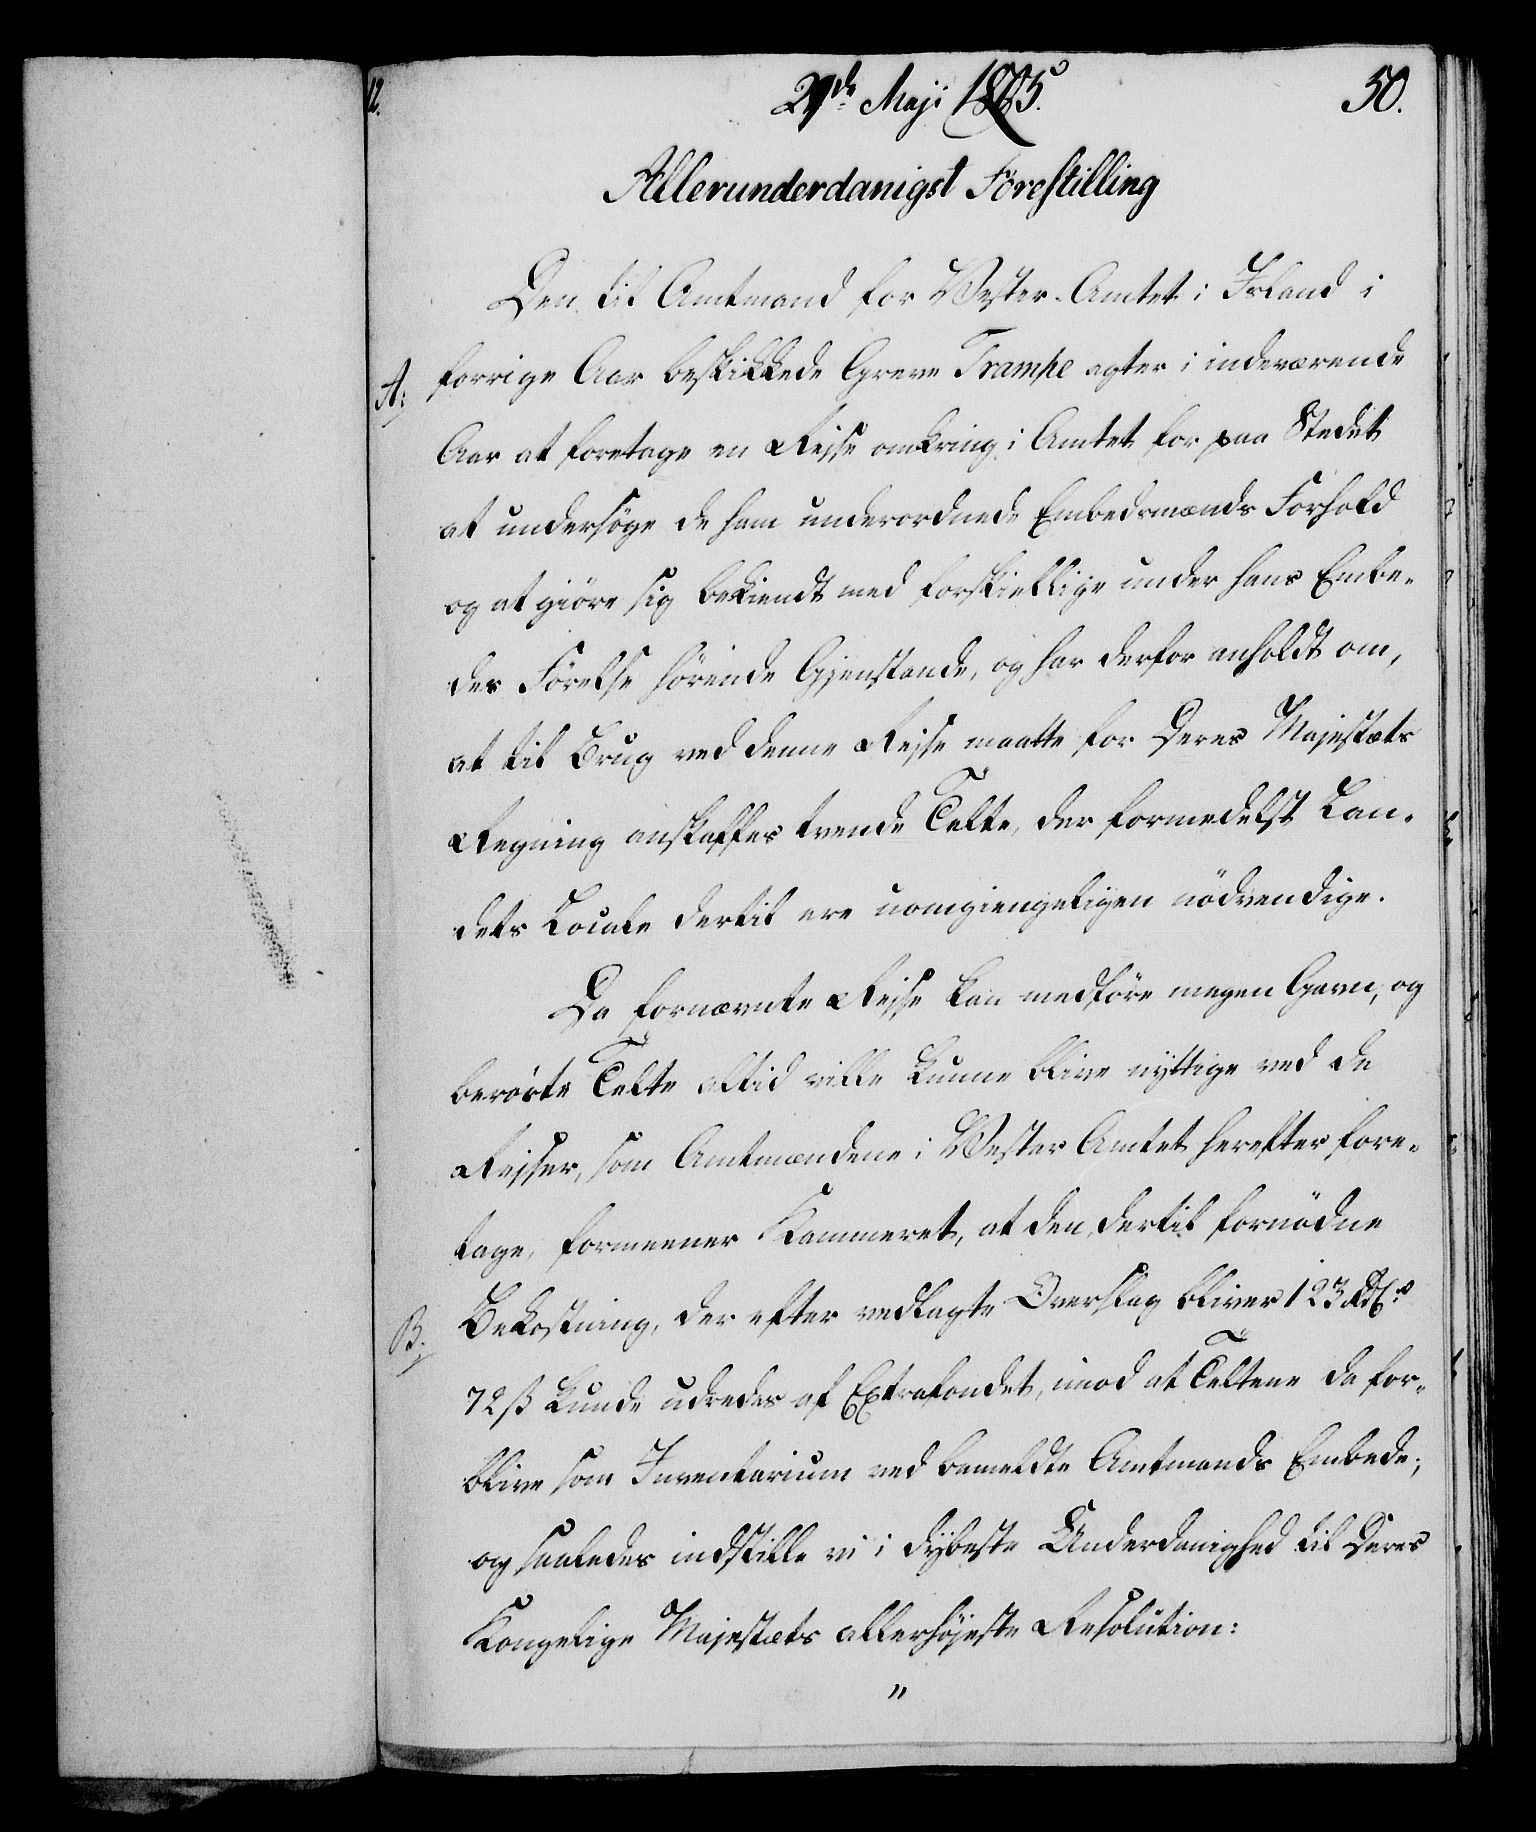 12.
29de Maji 1805.
50.
Allerunderdanigst Forestilling
Den til Amtmand for Vester-Amtet i Island i
A: forrige Aar beskikkede Greve Trampe agter i indeværende
Aar at foretage en Rejse omkring i Amtet for paa Stedet
at undersöge de ham underordnede Embedsmænds Forhold
og at giöre sig bekiendt med forskiellige under hans Embe-
des Förelse hörende Gjenstande, og har derfor anholdt om,
at til Brug ved denne Rejse maatte for Deres Majestæts
Regning anskaffes trende Telte, der formedelst Lan-
dets Locale dertil ere uomgiengeligen nödvendige.
Da fornævnte Rejse kan medföre megen Gavn, og
berörte Telte altid ville kunne blive nyttige ved de
Rejser, som Amtmændene i Vester Amtet herefter fore-
tage, formeener Kammeret, at den dertil fornödne
B: Bekostning, der efter vedlagte Overslag bliver 123 Rdlr
72 ß kunde udredes af Extrafondet, imod at Teltene da for-
blive som Inventarium ved bemeldte Amtmands Embede;
og saaledes indstille vi i dybeste Underdanighed til Deres
Kongelige Majestæts allerhöjeste Resolution:
"